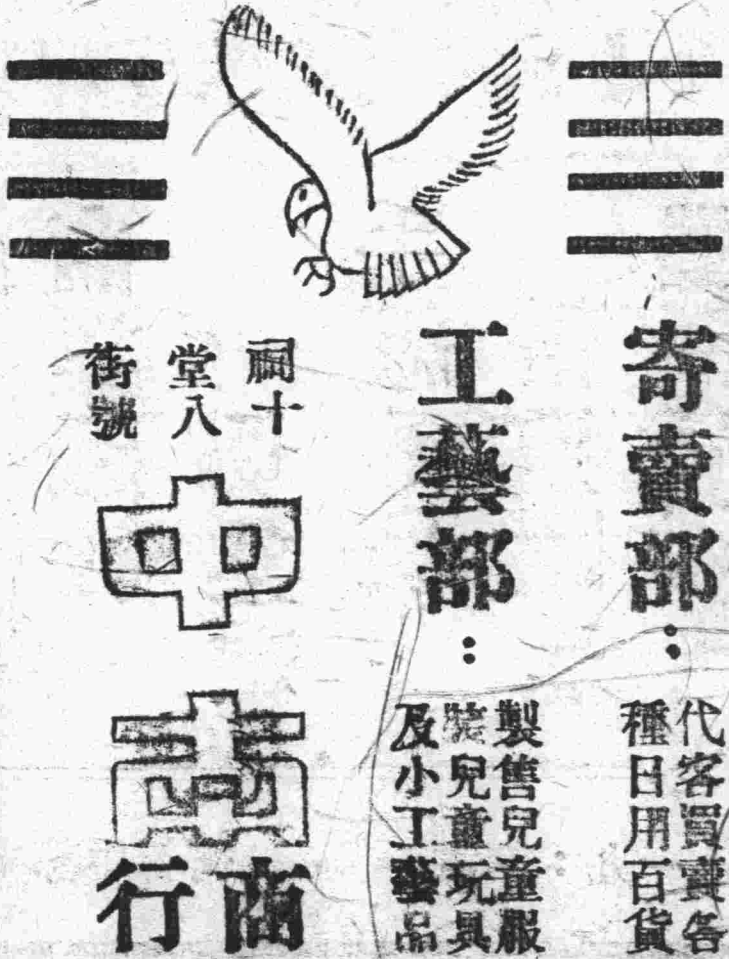 寄賣部：
代客買賣各
種日用百貨
工藝部：
製售兒童服
裝兒童玩具
及小工藝品
祠堂街
十八號
中南
商行